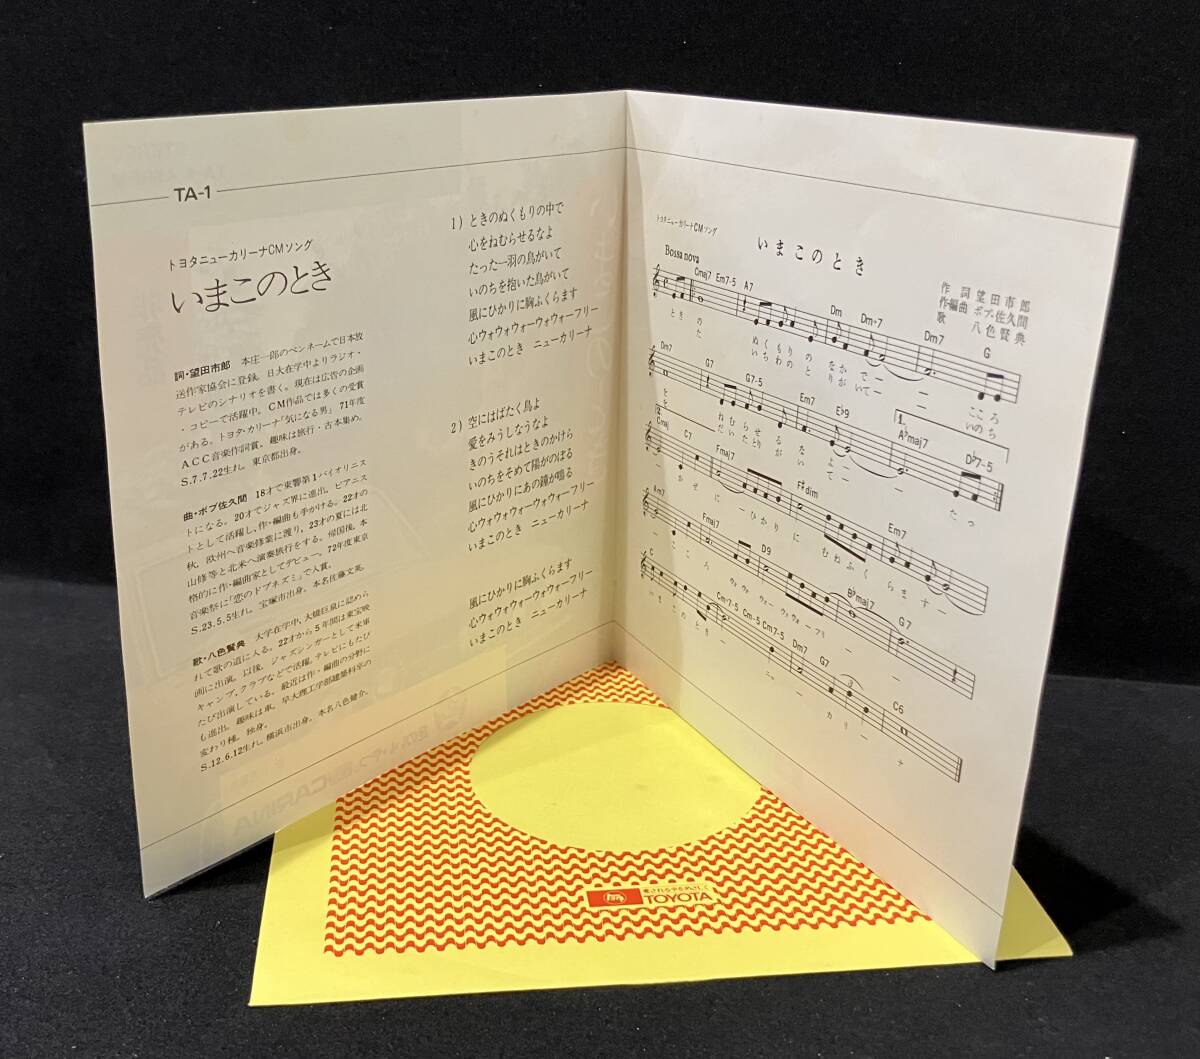 TA-1
トヨタニューカリーナCMソング
いまこのとき
詞・望田市郎 本庄一郎のペンネームで日本放
送作家協会に登録。日大在学中よりラジオ・
テレビのシナリオを書く。現在は広告の企画
・コピーで活躍中。CM作品では多くの受賞
がある。トヨタ・カリーナ「気になる男」71年度
ACC音楽作詞賞。趣味は旅行・古本集め。
S.7.7.22生れ。東京都出身。
曲・ボブ佐久間 18才で東響第1バイオリニス
トになる。20才でジャズ界に進出。ピアニス
トとして活躍し、作・編曲も手がける。22才の
秋、欧州へ音楽修業に渡り、23才の夏には北
山修等と北米へ演奏旅行をする。帰国後、本
格的に作・編曲家としてデビュー。72年度東京
音楽祭に「恋のドブネズミ」で入賞。
S.23.5.5生れ。宝塚市出身。本名佐藤文英。
歌・八色賢典 大学在学中、大橋巨泉に認めら
れて歌の道に入る。22才から5年間は東宝映
画に出演。以後、ジャズシンガーとして米軍
キャンプ、クラブなどで活躍。テレビにもたび
たび出演している。最近は作・編曲の分野に
も進出。趣味は車。早大理工学部建築科卒の
変わり種。独身。
S.12.6.12生れ。横浜市出身。本名八色健介。
1) ときのぬくもりの中で
心をねむらせるなよ
たった一羽の鳥がいて
いのちを抱いた鳥がいて
風にひかりに胸ふくらます
心ウォウォウォーウォウォーフリー
いまこのとき ニューカリーナ
2) 空にはばたく鳥よ
愛をみうしなうなよ
きのうそれはときのかけら
いのちをそめて陽がのぼる
風にひかりにあの鐘が鳴る
心ウォウォウォーウォウォーフリー
いまこのとき ニューカリーナ
風にひかりに胸ふくらます
心ウォウォウォーウォウォーフリー
いまこのとき ニューカリーナ
トヨタニューカリーナCMソング
いまこのとき
作詞 望田市郎
作・編曲 ボブ・佐久間
歌 八色賢典
Bossa nova
Cmaj7 Em7-5 A7 Dm Dm+7 Dm7 G
ときの ぬくもりの なかでー ー こころ
た いちわの とりがいてー ー いのち
Dm7 G7 G7-5 Em7 E♭9 1. A♭maj7 D♭7-5
を ねむらせる なよー ー たっ
を だいたとり がいてー
2. Cmaj C7 Fmaj7 F#dim Em7
かぜに ーひかり に むねふく らますー ー
Am7 Fmaj7 D9 B♭maj7 G7
ーここ ろ ウォウォー ウォウォーフリ ー
C Cm7-5 Cm-5 Cm7-5 Dm7 G7 C6
いまこのときー ニュー カリー ナ
愛される車をめざして
TOYOTA